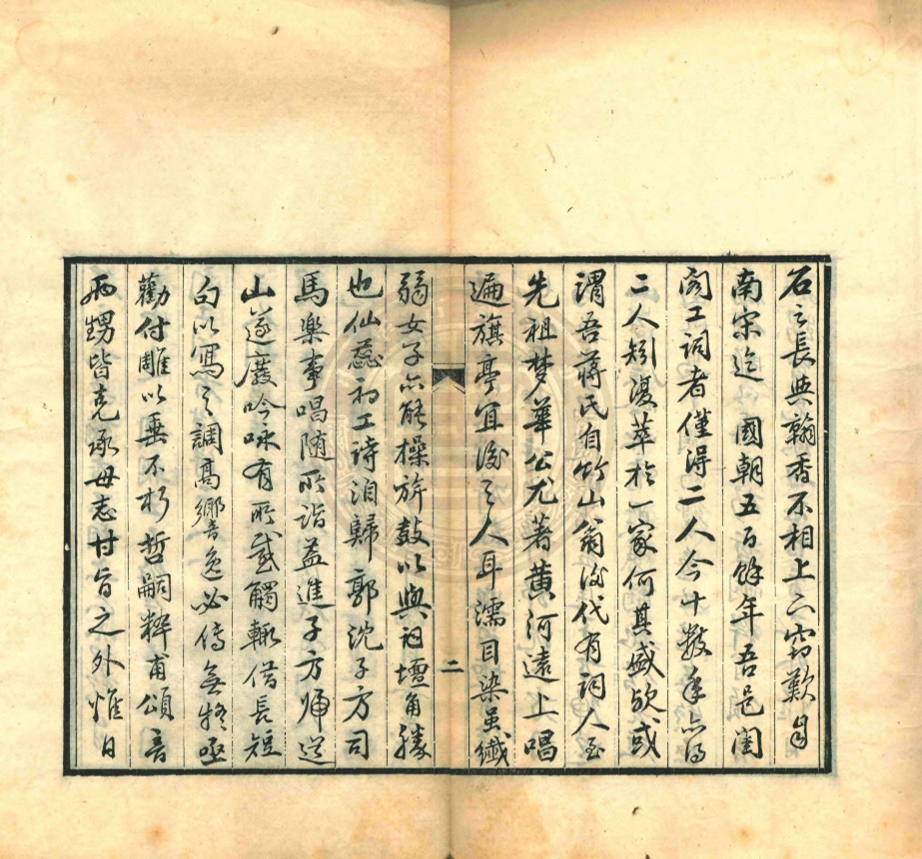 石之長與翰香不相上下竊歎自
南宋迄　國朝五百餘年吾邑閨
閣工詞者僅得二人今十數年亦得
二人矧復萃於一家何其盛歟或
謂吾蔣氏自竹山翁後代有詞人至
先祖夢華公尤著黃河遠上唱
遍旗亭宜後之人耳濡目染虽纖
弱女子亦能操旂鼓以與詞壇角勝
也仙蕊初工詩洎歸郭沈子方司
馬樂事唱随所詣益進子方師逆
山遂廢吟咏有所感觸輒借長短
句以寫之調高響逸必傳無疑亟
勸付雕以垂不朽哲嗣粹甫頌音
兩甥皆克承母志甘旨之外惟日
二